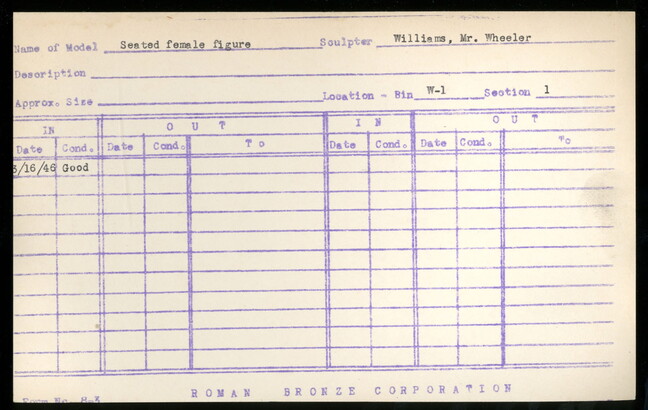 Name of Model Seated female figure Sculptor Williams, Mr. Wheeler
Description
Approx. Size Location - Bin W-1 Section 1
IN OUT IN OUT
Date Cond. Date Cond. To Date Cond. Date Cond. To
/16/46 Good
Form No. 8-3
ROMAN BRONZE CORPORATION